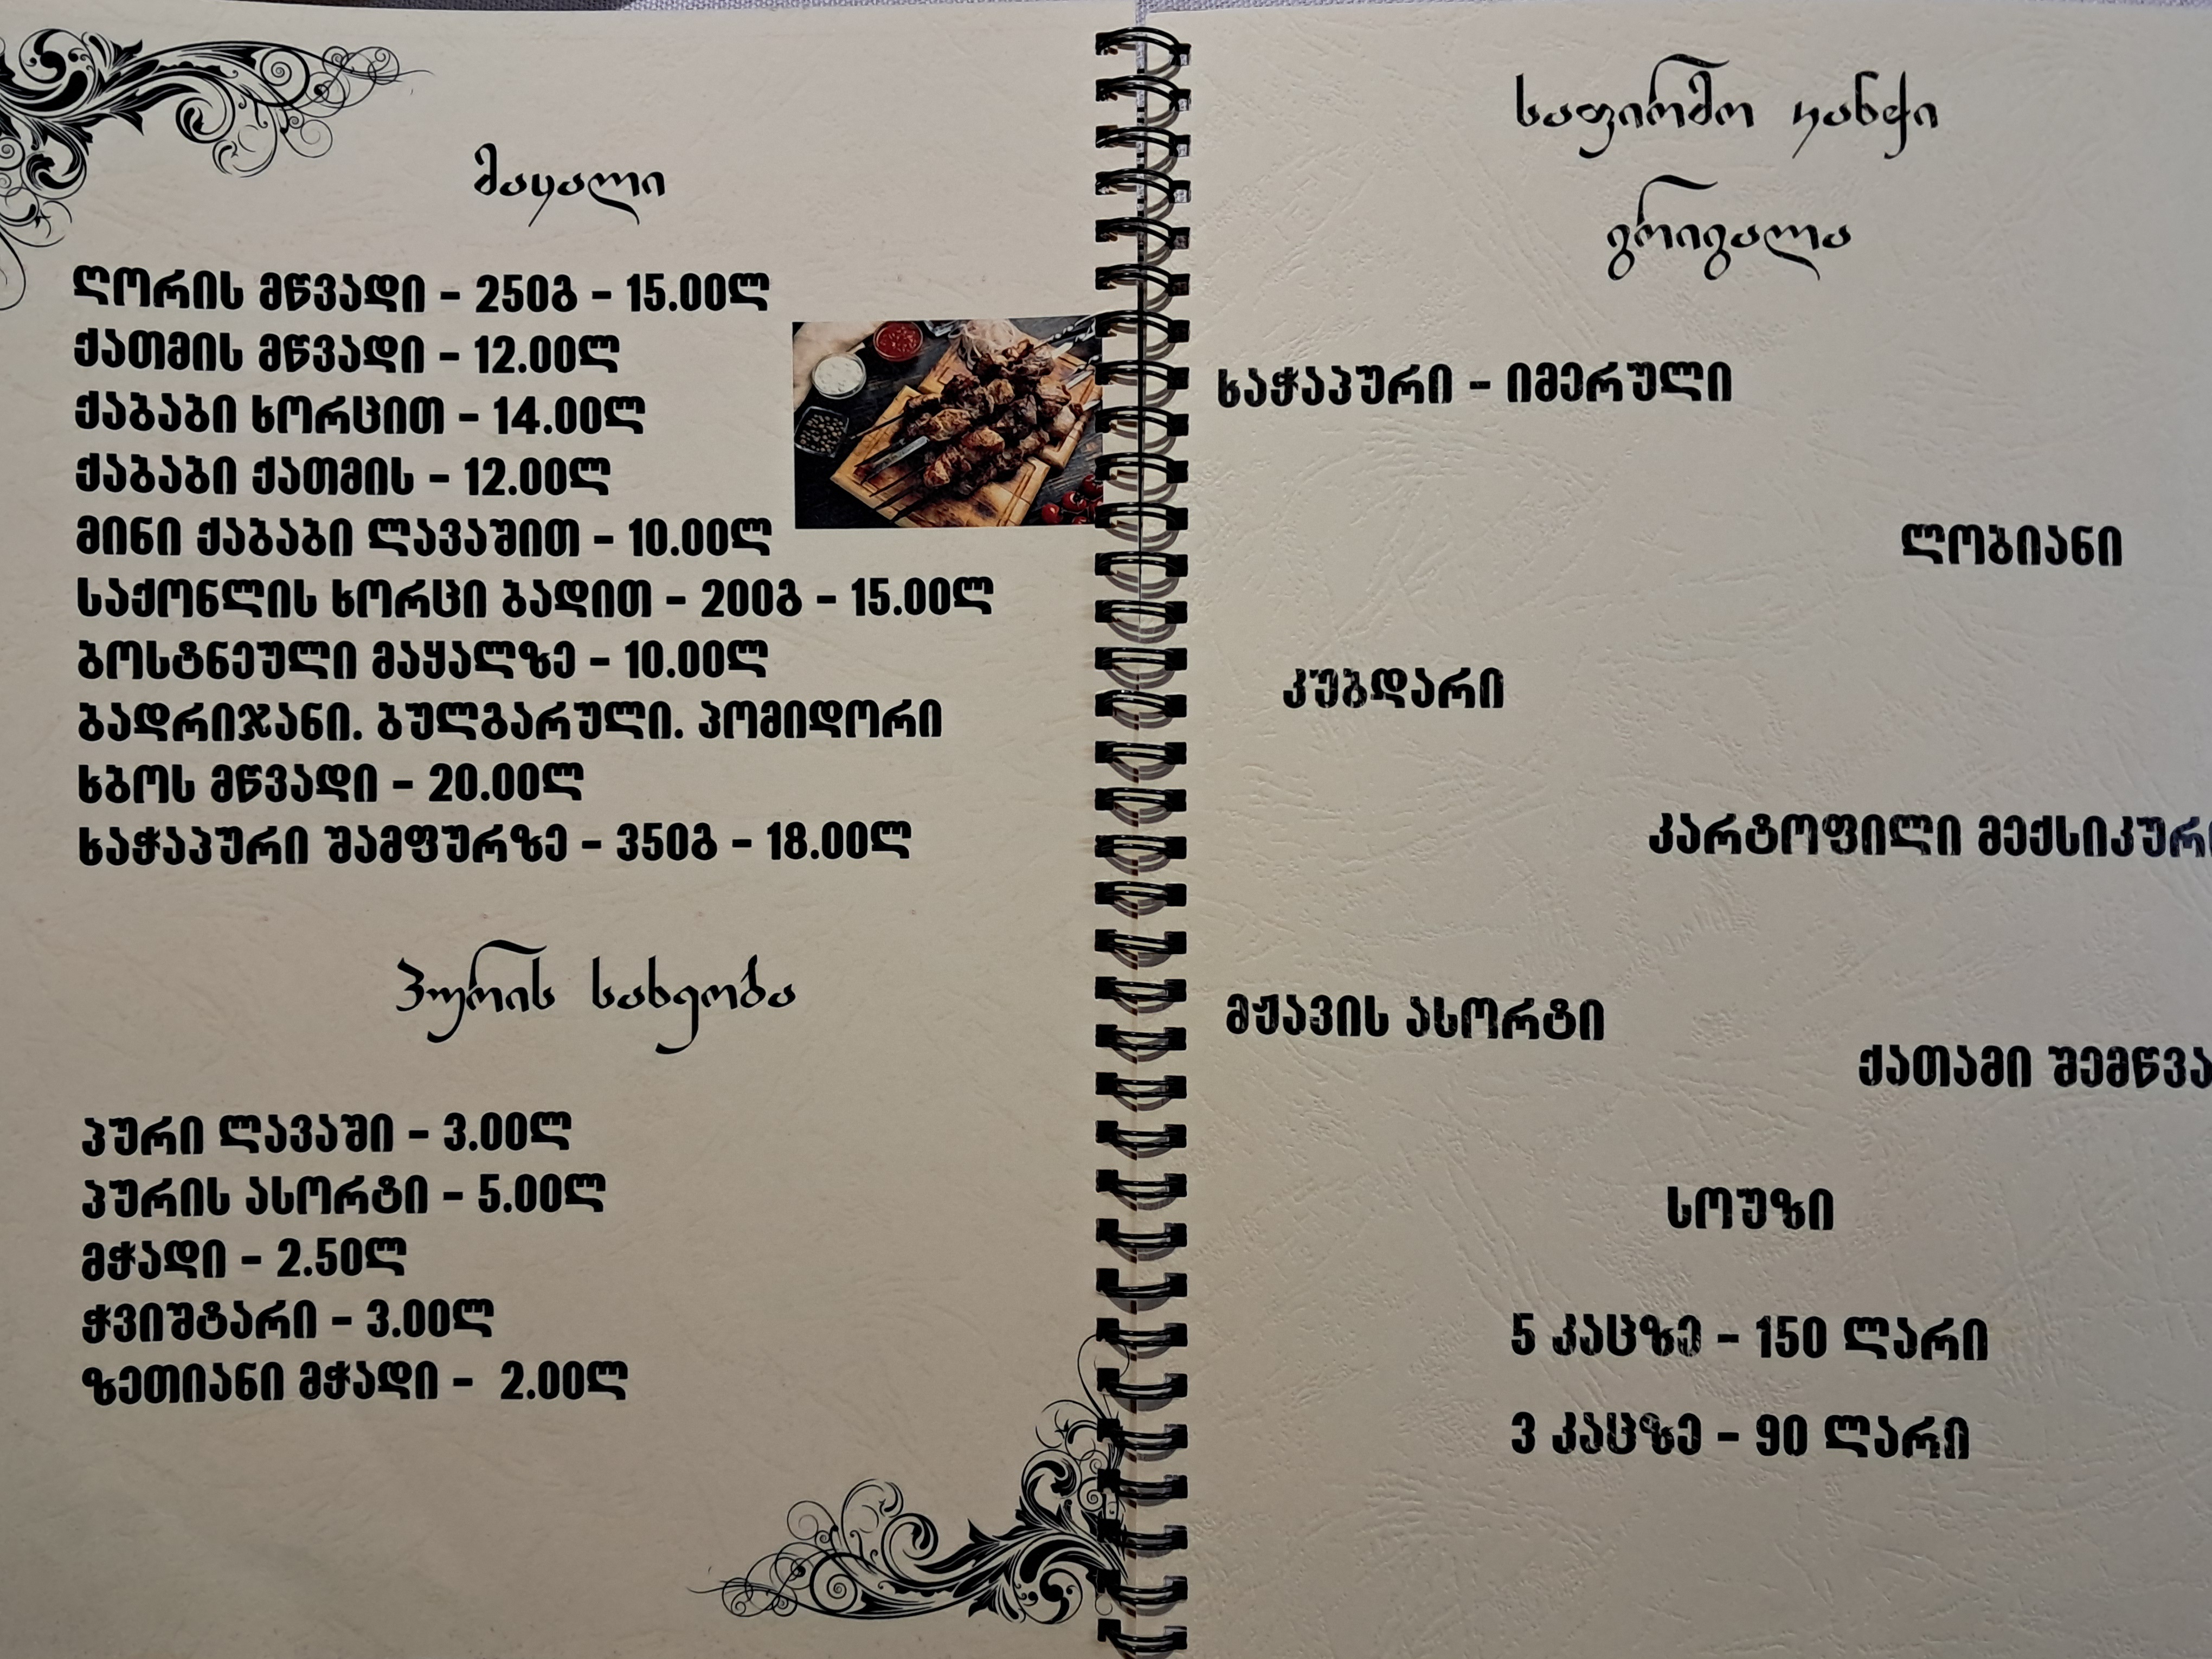 მაყალი
ღორის მწვადი - 250გ - 15.00ლ
ქათმის მწვადი - 12.00ლ
ქაბაბი ხორცით - 14.00ლ
ქაბაბი ქათმის - 12.00ლ
მინი ქაბაბი ლავაშით - 10.00ლ
საქონლის ხორცი ბადით - 200გ - 15.00ლ
ბოსტნეული მაყალზე - 10.00ლ
ბადრიჯანი. ბულგარული. პომიდორი
ხბოს მწვადი - 20.00ლ
ხაჭაპური შამფურზე - 350გ - 18.00ლ
პურის სახეობა
პური ლავაში - 3.00ლ
პურის ასორტი - 5.00ლ
მჭადი - 2.50ლ
ჭვიშტარი - 3.00ლ
ზეთიანი მჭადი - 2.00ლ
საფირმო
გრიგალა
ხაჭაპური - იმერული
ლობიანი
კუბდარი
კარტოფილი მექსიკური
მჟავის ასორტი
ქათამი შემწვა
სოუზი
5 კაცზე - 150 ლარი
3 კაცზე - 90 ლარი